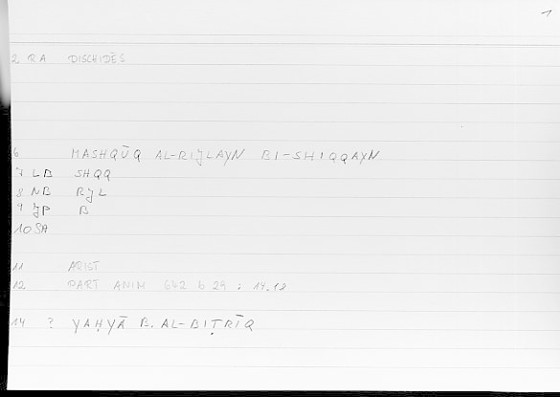 1
2 RA DISCHIDĒS
6 MASHQŪQ AL-RIJLAYN BI-SHIQQAYN
7 LB SHQQ
8 NB RJL
9 JP B
10 SA
11 ARIST
12 PART ANIM 642 b 29 : 14.12
14 ? YAḤYĀ B. AL-BIṬRĪQ